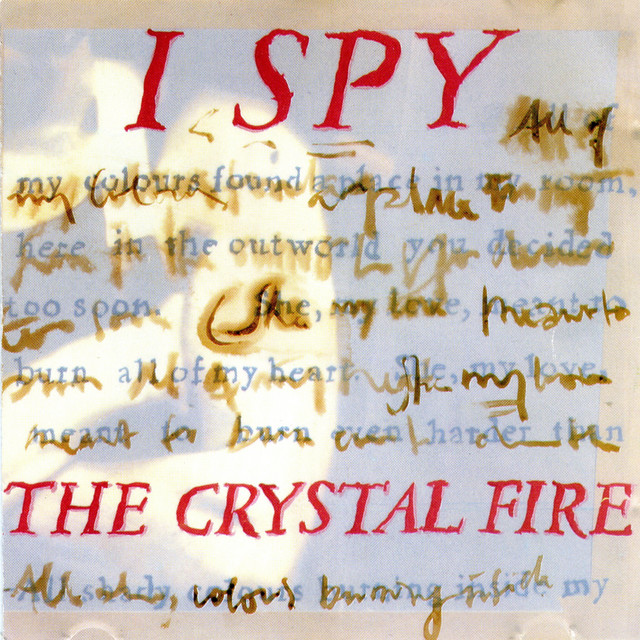 I SPY
All of
my colours found a place in my room,
here in the outworld you decided
too soon. She, my love, meant to
burn all of my heart. She, my love,
meant to burn even harder than
THE CRYSTAL FIRE
All shady colours burning inside my